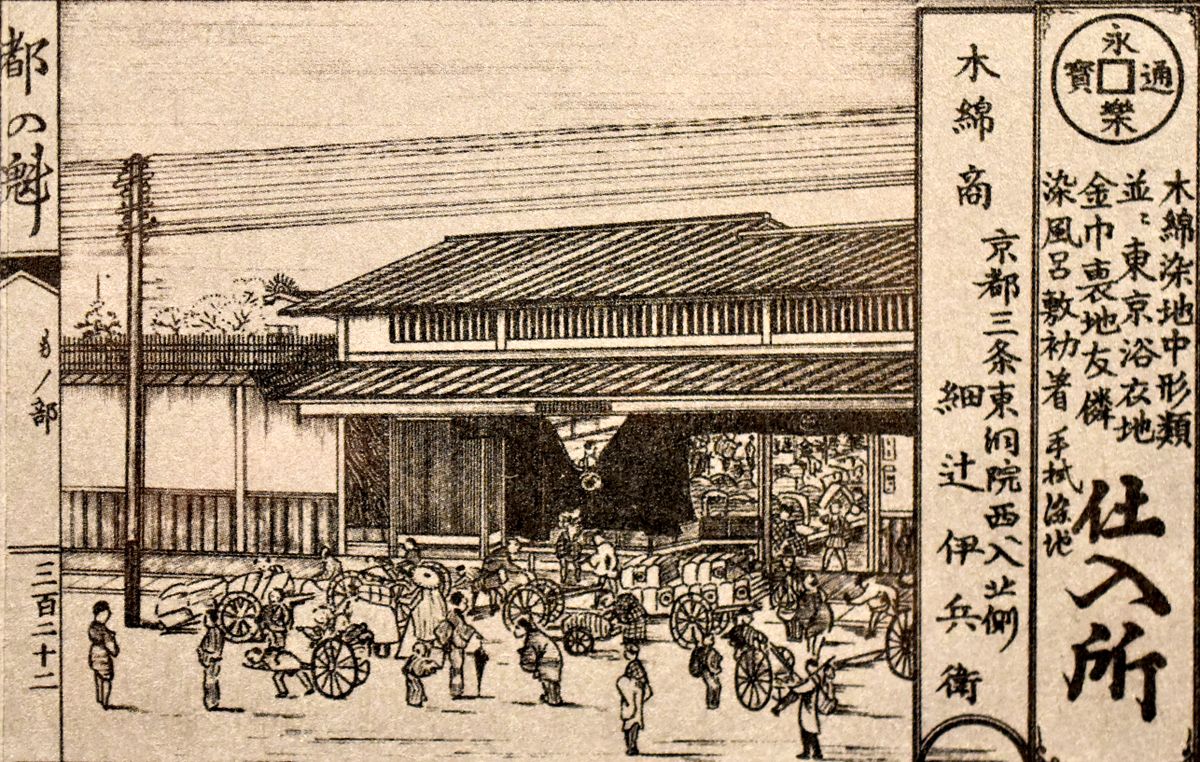 永樂通寶
木綿染地中形類
並ニ東京浴衣地
金巾裏地友隣
染風呂敷初着 手拭染地
仕入所
木綿商
京都三条東洞院西入北側
細辻伊兵衛
都の魁
もノ部
三百二十二